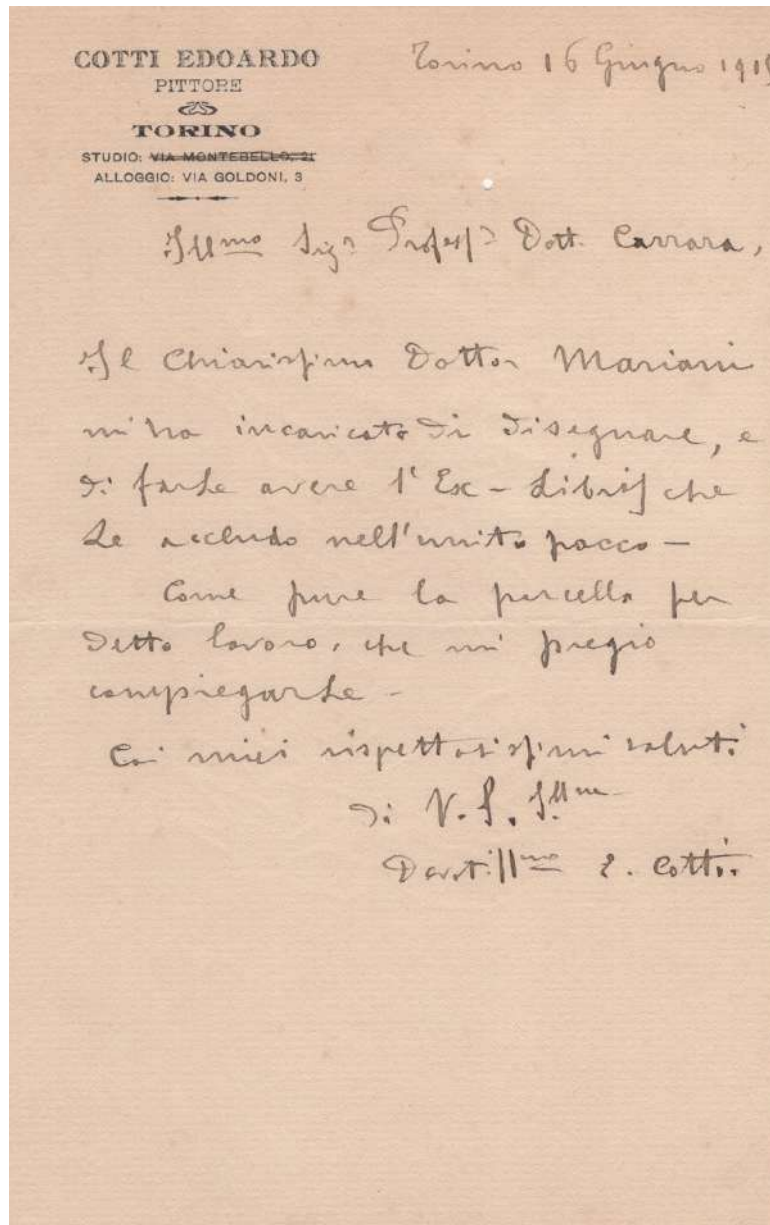 COTTI EDOARDO
PITTORE
TORINO
STUDIO: VIA MONTEBELLO, 21
ALLOGGIO: VIA GOLDONI, 3
Torino 16 Giugno
Ill.mo Sigr Profesr Dott. Carrara,
Il Chiarissimo Dottor Mariani
mi ha incaricato di disegnare, e
di farLe avere l'Ex-Libris che
Le accludo nell'unito pacco —
Come pure la parcella per
detto lavoro, che mi pregio
compiegarLe —
Coi miei rispettosissimi saluti
di V. S. Ill.ma
Devotill.mo E. Cotti.